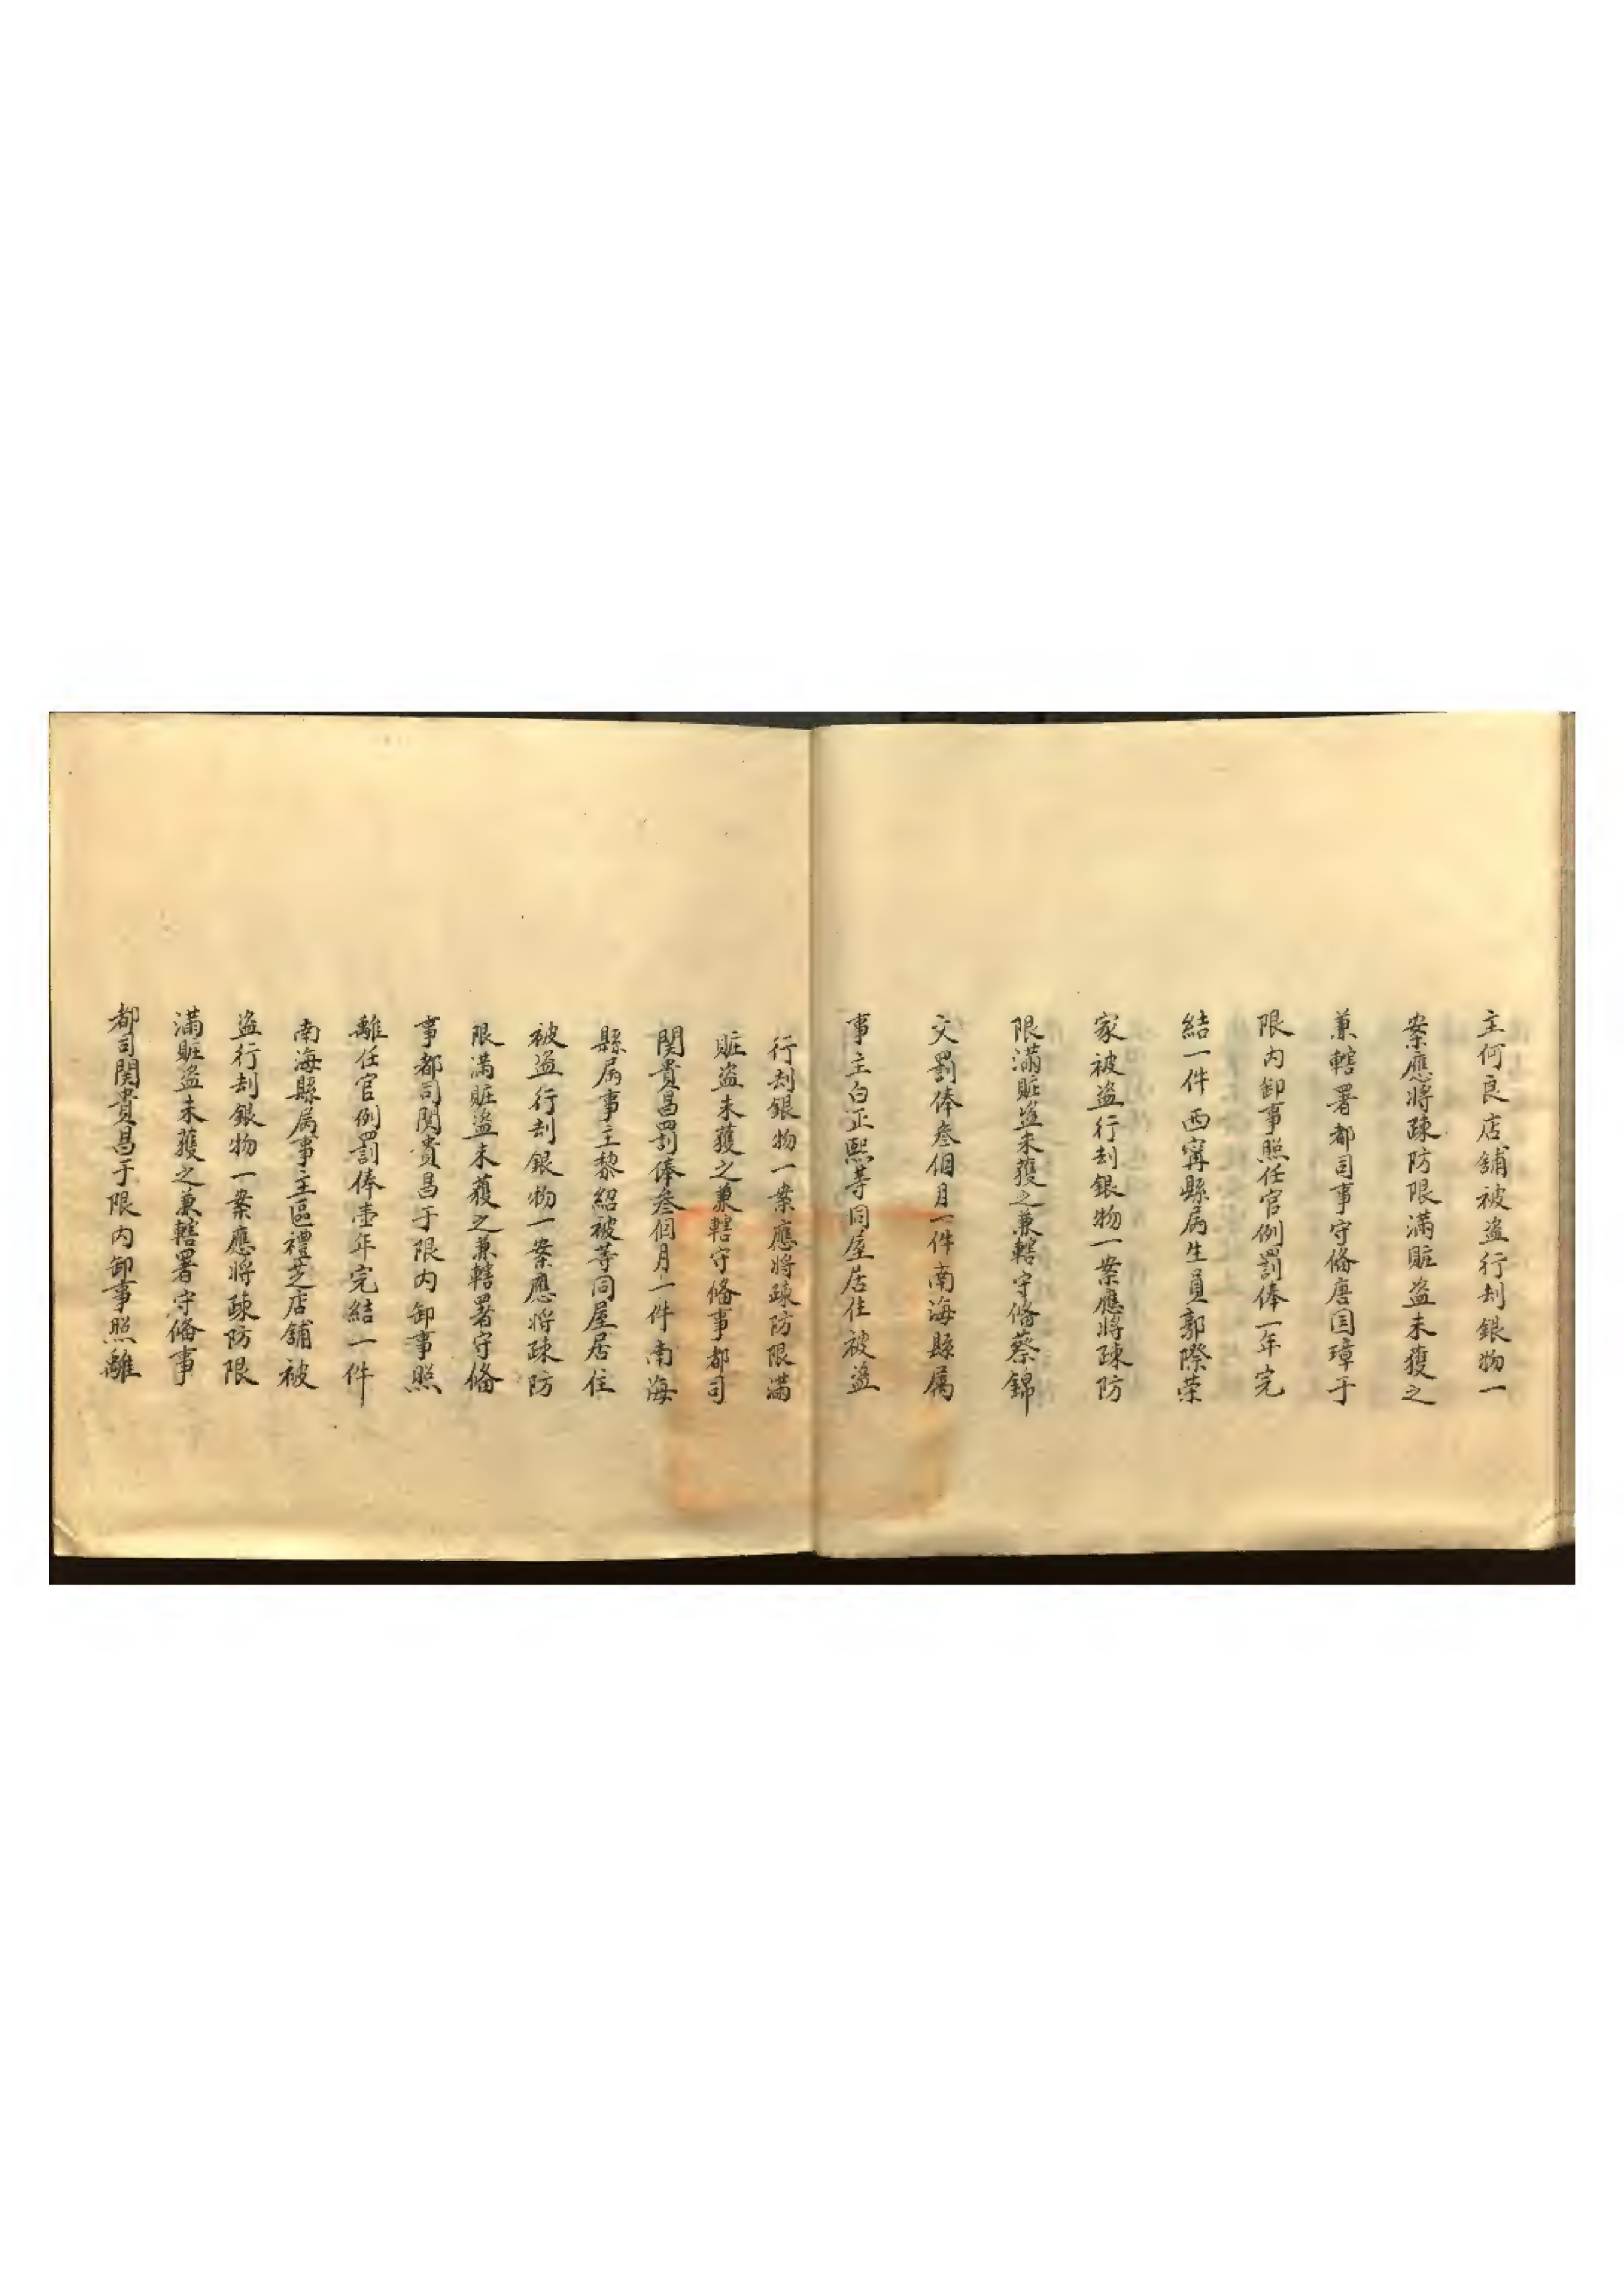 主何良店舖被盗行刦銀物一
案應將疎防限滿賍盗未獲之
兼轄署都司事守俻唐国璋于
限内卸事照任官例罰俸一年完
結一件西寧縣属生員郭際荣
家被盗行刦銀物一案應將疎防
限滿賍盗未獲之兼轄守俻蔡錦
文罰俸叁個月一件南海縣属
事主白正熙等同屋居住被盗
行刦銀物一案應將疎防限滿
賍盗未獲之兼轄守俻事都司
関貴昌罰俸叁個月一件南海
縣属事主黎紹被等同屋居住
被盗行刦銀物一案應將疎防
限滿賍盗未獲之兼轄署守俻
事都司関貴昌于限内卸事照
離任官例罰俸壹年完結一件
南海縣属事主區禮芝店舖被
盗行刦銀物一案應將疎防限
滿賍盗未獲之兼轄署守俻事
都司関貴昌于限内卸事照離